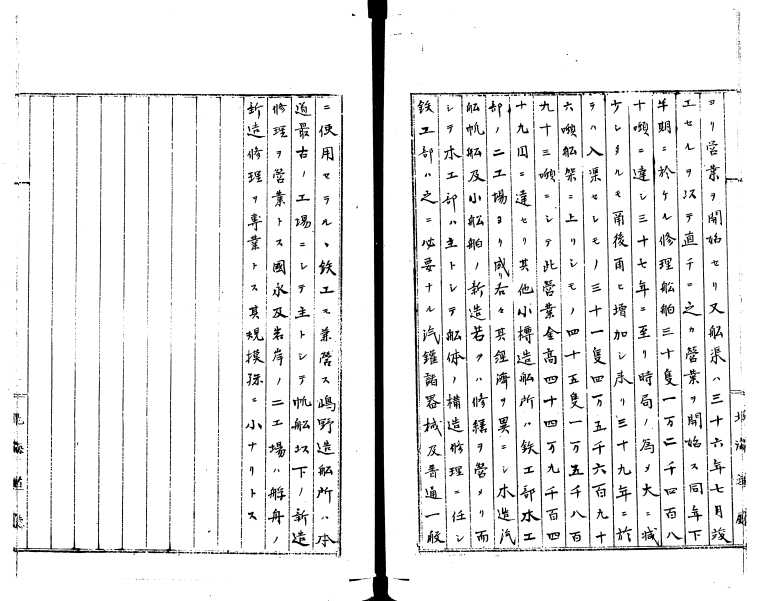 ヨリ営業ヲ開始セリ又船渠ハ三十六年七月竣
工セルヲ以テ直チニ之カ営業ヲ開始ス同年下
半期ニ於ケル修理船舶三十隻一万二千四百八
十噸ニ達シ三十七年ニ至リ時局ノ為メ大ニ減
少シタルモ爾後再ヒ増加シ来リ三十九年ニ於
テハ入渠セシモノ三十一隻四万五千六百九十
六噸船架ニ上リシモノ四十五隻一万五千八百
九十三噸ニシテ此営業金高四十四万九千百四
十九円ニ達セリ其他小樽造船所ハ鉄工部木工
部ノ二工場ヨリ成リ各々其経済ヲ異ニシ木造汽
船帆船及小船舶ノ新造若クハ修繕ヲ営メリ而
シテ木工部ハ主トシテ船体ノ構造修理ニ任シ
鉄工部ハ之ニ必要ナル汽鑵諸器械及普通一般
ニ使用セラルヽ鉄工ヲ兼営ス嶋野造船所ハ本
道最古ノ工場ニシテ主トシテ帆船以下ノ新造
修理ヲ営業トス國永及岩岸ノ二工場ハ艀舟ノ
新造修理ヲ専業トス其規模殊ニ小ナリトス
北海道廳
北海道廳